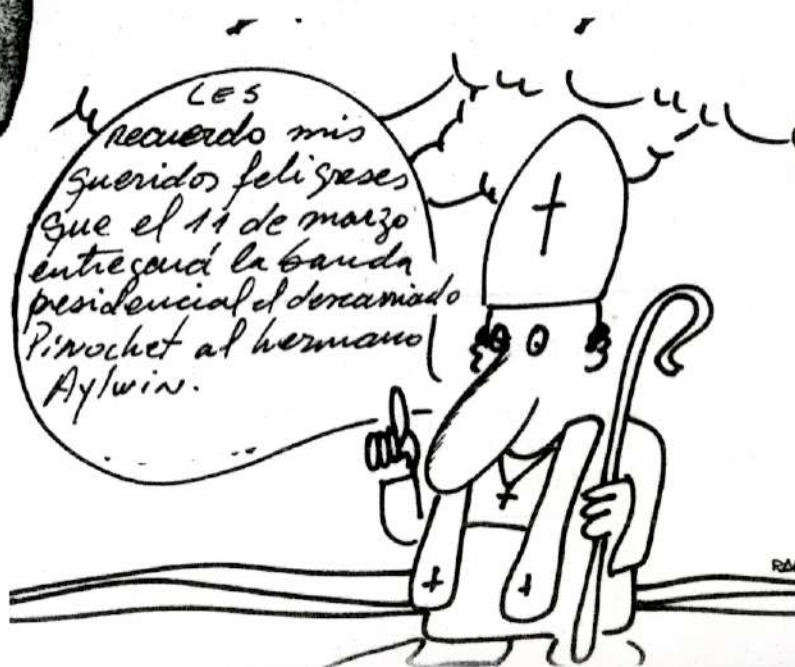 LES
recuerdo mis
queridos feligreses
que el 11 de marzo
entregará la banda
presidencial el descarriado
Pinochet al hermano
Aylwin.